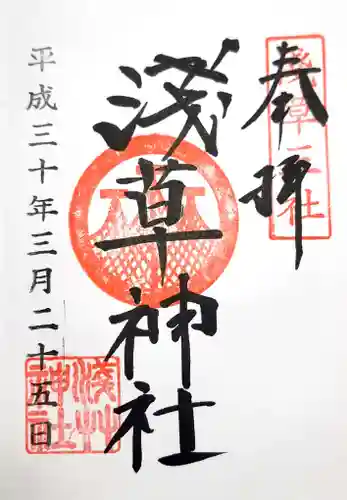 奉拝
浅草三社
浅草神社
平成三十年三月二十五日
浅草神社